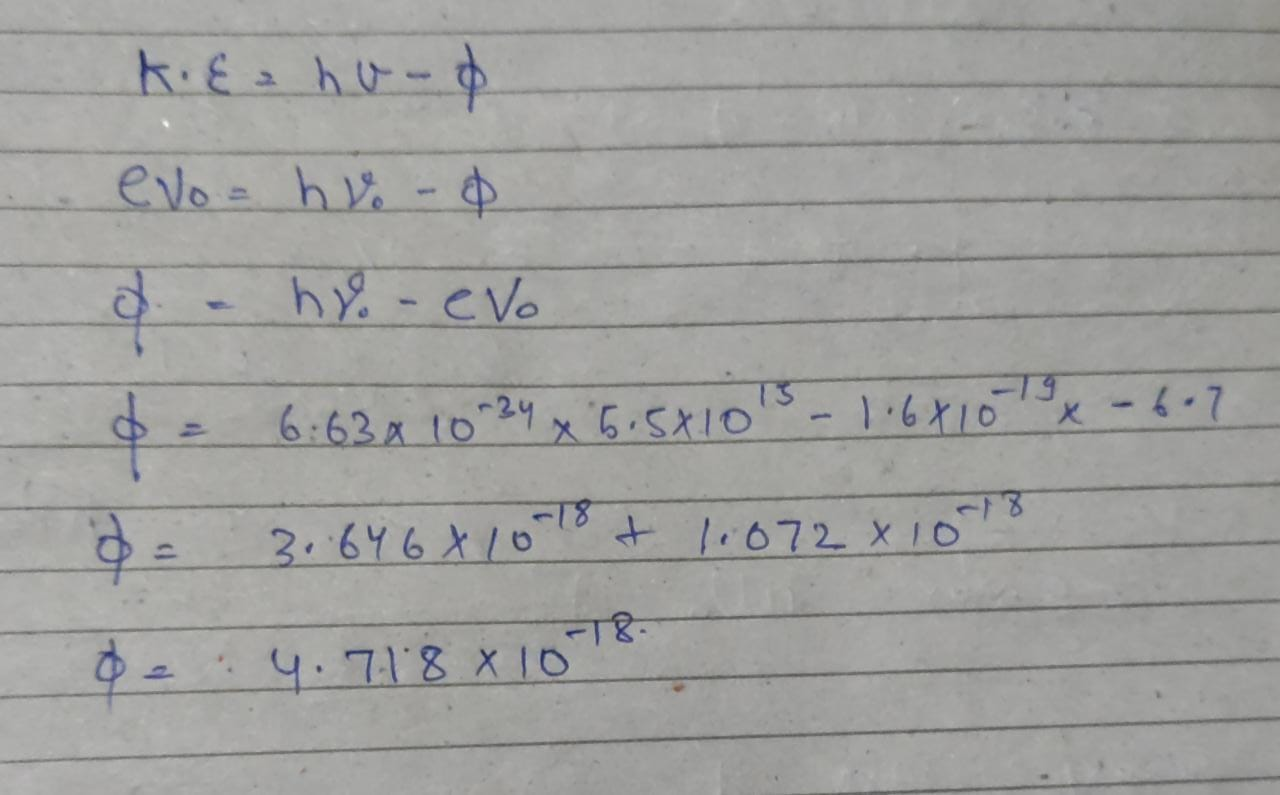 K.E = hν - ϕ
eV₀ = hν₀ - ϕ
ϕ = hν₀ - eV₀
ϕ = 6.63 x 10⁻³⁴ x 5.5 x 10¹⁵ - 1.6 x 10⁻¹⁹ x - 6.7
ϕ = 3.646 x 10⁻¹⁸ + 1.072 x 10⁻¹⁸
ϕ = 4.718 x 10⁻¹⁸